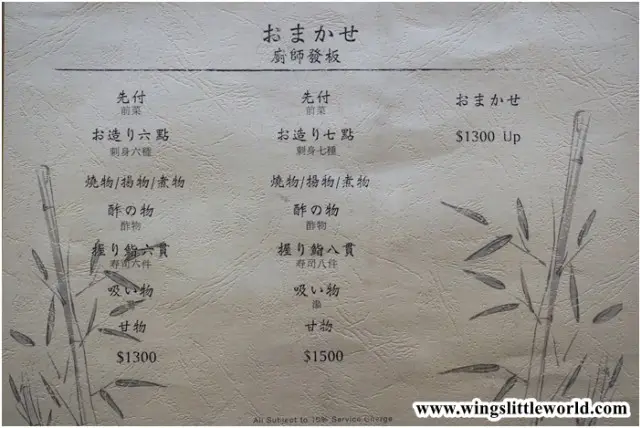 おまかせ
廚師發板
先付
前菜
お造り六點
刺身六種
燒物/揚物/煮物
酢の物
酢物
握り鮨六貫
寿司六件
吸い物
甘物
$1300
先付
前菜
お造り七點
刺身七種
燒物/揚物/煮物
酢の物
酢物
握り鮨八貫
寿司八件
吸い物
甘物
$1500
おまかせ
$1300 Up
All Subject to 10% Service Charge
www.wingslittleworld.com